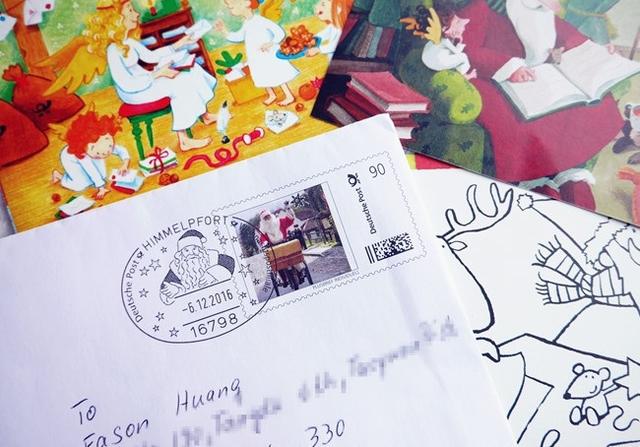 Deutsche Post HIMMELPFORT
-6.12.2016
16798
Deutsche Post 90
PLUSBRIEF INDIVIDUELL
To
Eason Huang
330